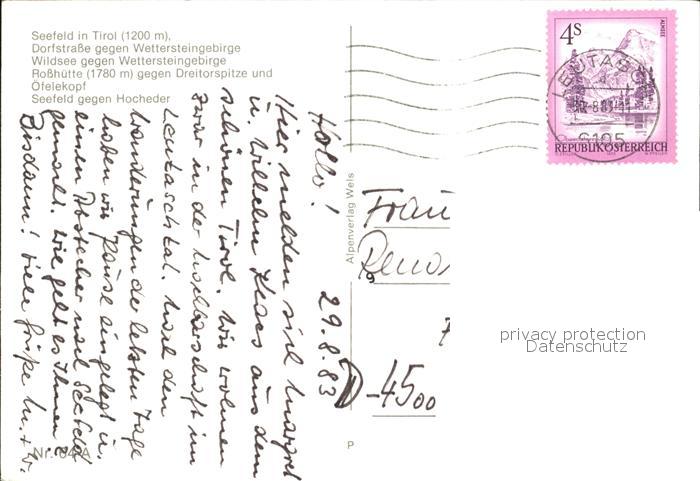 Seefeld in Tirol (1200 m),
Dorfstraße gegen Wettersteingebirge
Wildsee gegen Wettersteingebirge
Roßhütte (1780 m) gegen Dreitorspitze und
Öfelekopf
Seefeld gegen Hocheder
Hallo! 29.8.83
Hier melden sich Margret
u. Wilhelm Klaes aus dem
schönen Tirol. Wir wohnen
zwar in der Nachbarschaft im
Leutaschtal. Nach den
Wanderungen der letzten Tage
haben wir Pause eingelegt u.
einen Abstecher nach Seefeld
gemacht. Wie geht es Ihnen?
Bisdann! Viele Grüße M. + W.
Nr. 64/A
Alpenverlag Wels
P
4S
ALMSEE
REPUBLIK ÖSTERREICH
LEUTASCH
6105
Frau
D-4500
privacy protection
Datenschutz